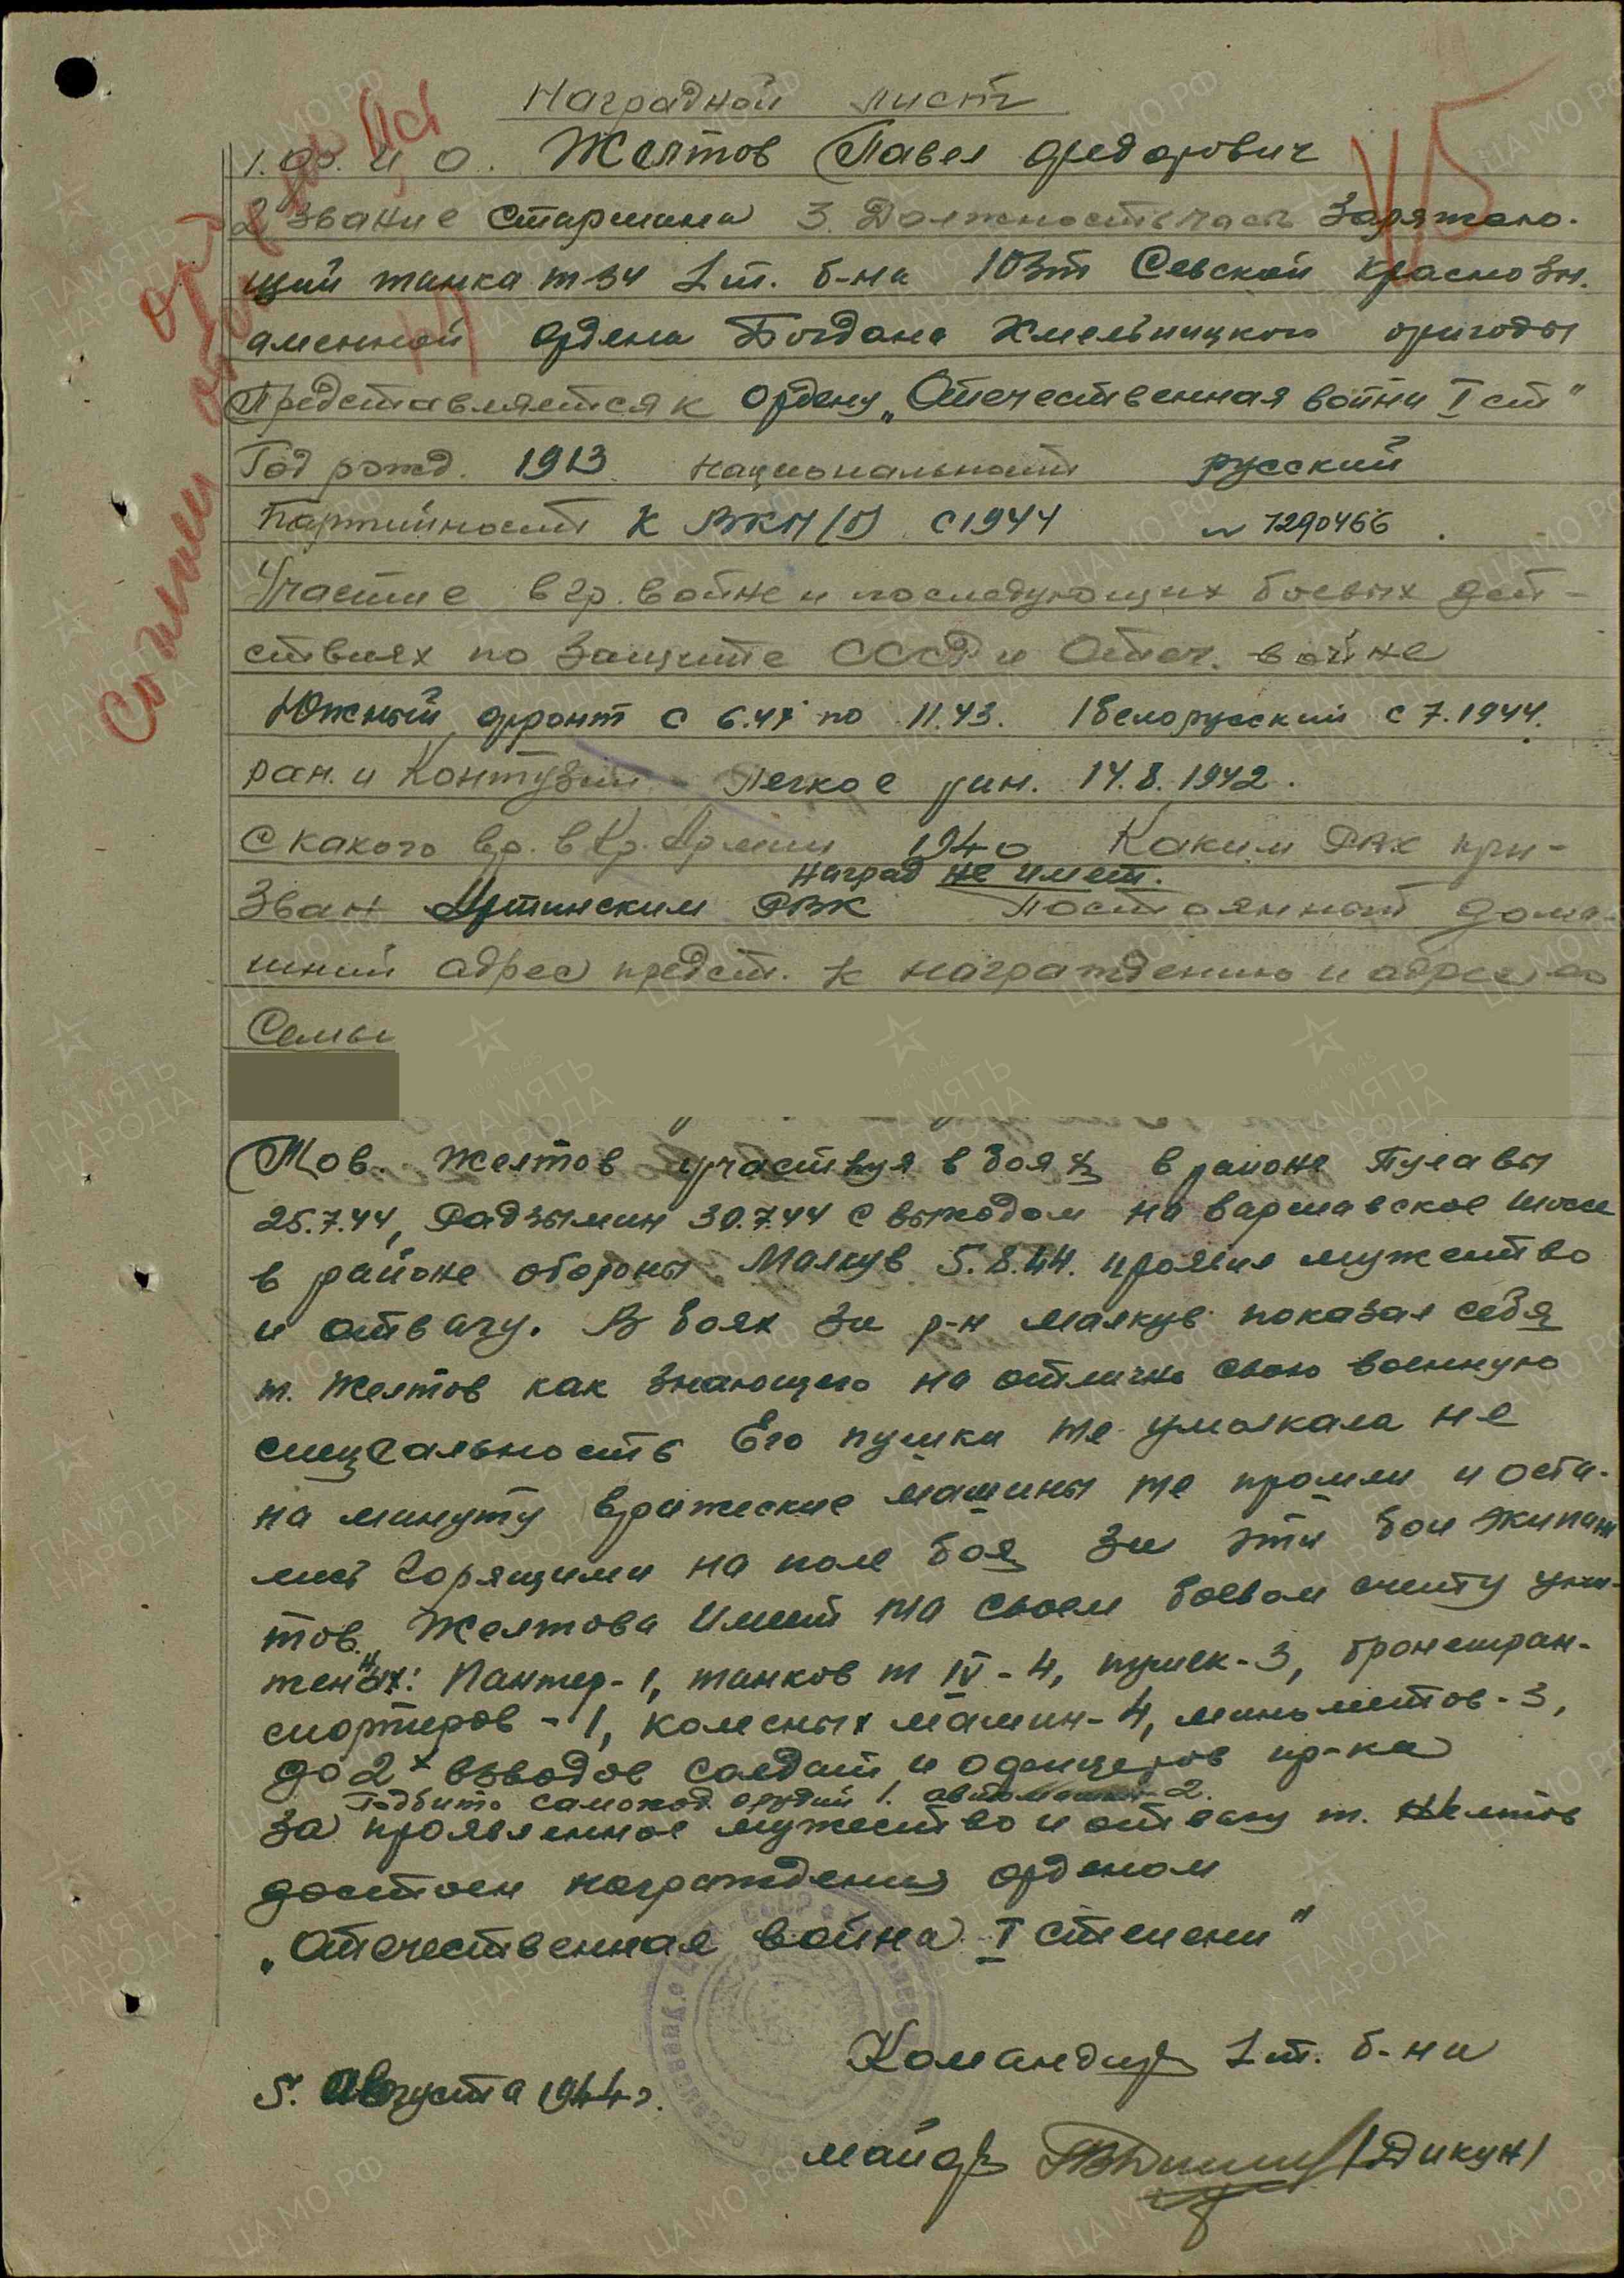 Наградной лист
1. Ф. И, О. Желтов Павел Федорович
2 Звание Старшина 3. Должность часть Заряжаю-
щий танка т-34 1 т. б-на 103т Севской Краснозн.
аменной ордена Богдана Хмельницкого бригады
Представляется к ордену „Отечественная война I ст"
Год рожд. 1913 национальность русский
Партийность К ВКП/б/ с 1944 № 7290466
Участие в гр. войне и последующих боевых дей-
ствиях по защите СССР и Отеч. войне
Южный фронт с 6.41 по 11.43. 1 белорусский с 7.1944.
ран. и Контузии Легкое ран. 14.8.1942.
С какого вр. в Кр. Армии 1940 Каким РВК при-
наград не имеет.
Зван Артинским РВК Постоянной дома-
шний адрес предст. к награждению и адрес его
Семьи
Тов. Желтов участвуя в боях в районе Пулавы
25.7.44, Радзымин 30.7.44 с выходом на варшавское шоссе
в районе обороны Малкув 5.8.44. проявил мужество
и отвагу. В боях за р-н Малкув показал себя
т. Желтов как знающего на отлично свою военную
специальность Его пушка не умолкала не
на минуту вражеские машины не прошли и оста-
лись горящими на поле боя За эти бои экипаж
тов. Желтова имеет на своем боевом счету уни-
тенных: Пантер - 1, танков т IV - 4, пушек - 3, бронетран-
спортеров - 1, колесных машин - 4, минометов - 3,
до 2х взводов солдат и офицеров пр-ка
Подбито самоход. орудий 1. автомашин 2.
За проявленное мужество и отвагу т. Желтов
достоен награждения орденом
„Отечественная война I степени"
Командир 1 т. б-на
5. Августа 1944 г.
майор /Дикун/